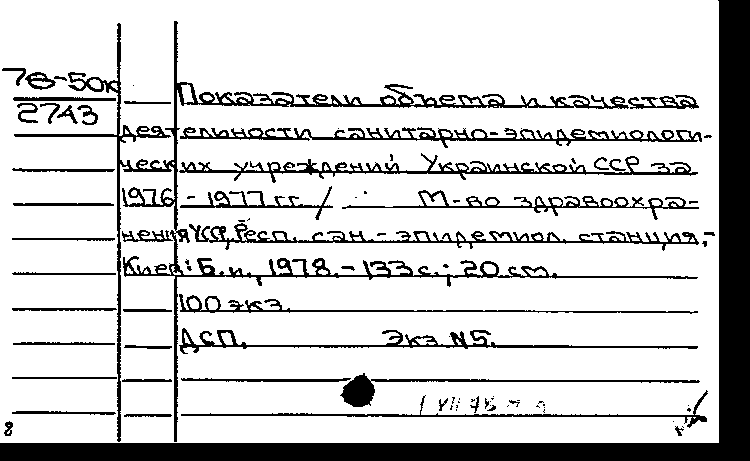 78-50к
2743
Показатели объема и качества
деятельности санитарно-эпидемиологи-
ческих учреждений Украинской ССР за
1976 - 1977 гг. / М-во здравоохра-
нения УССР, Респ. сан.-эпидемиол. станция.-
Киев: Б. и., 1978. - 133 с.; 20 см.
100 экз.
ДСП. Экз. №5.
8